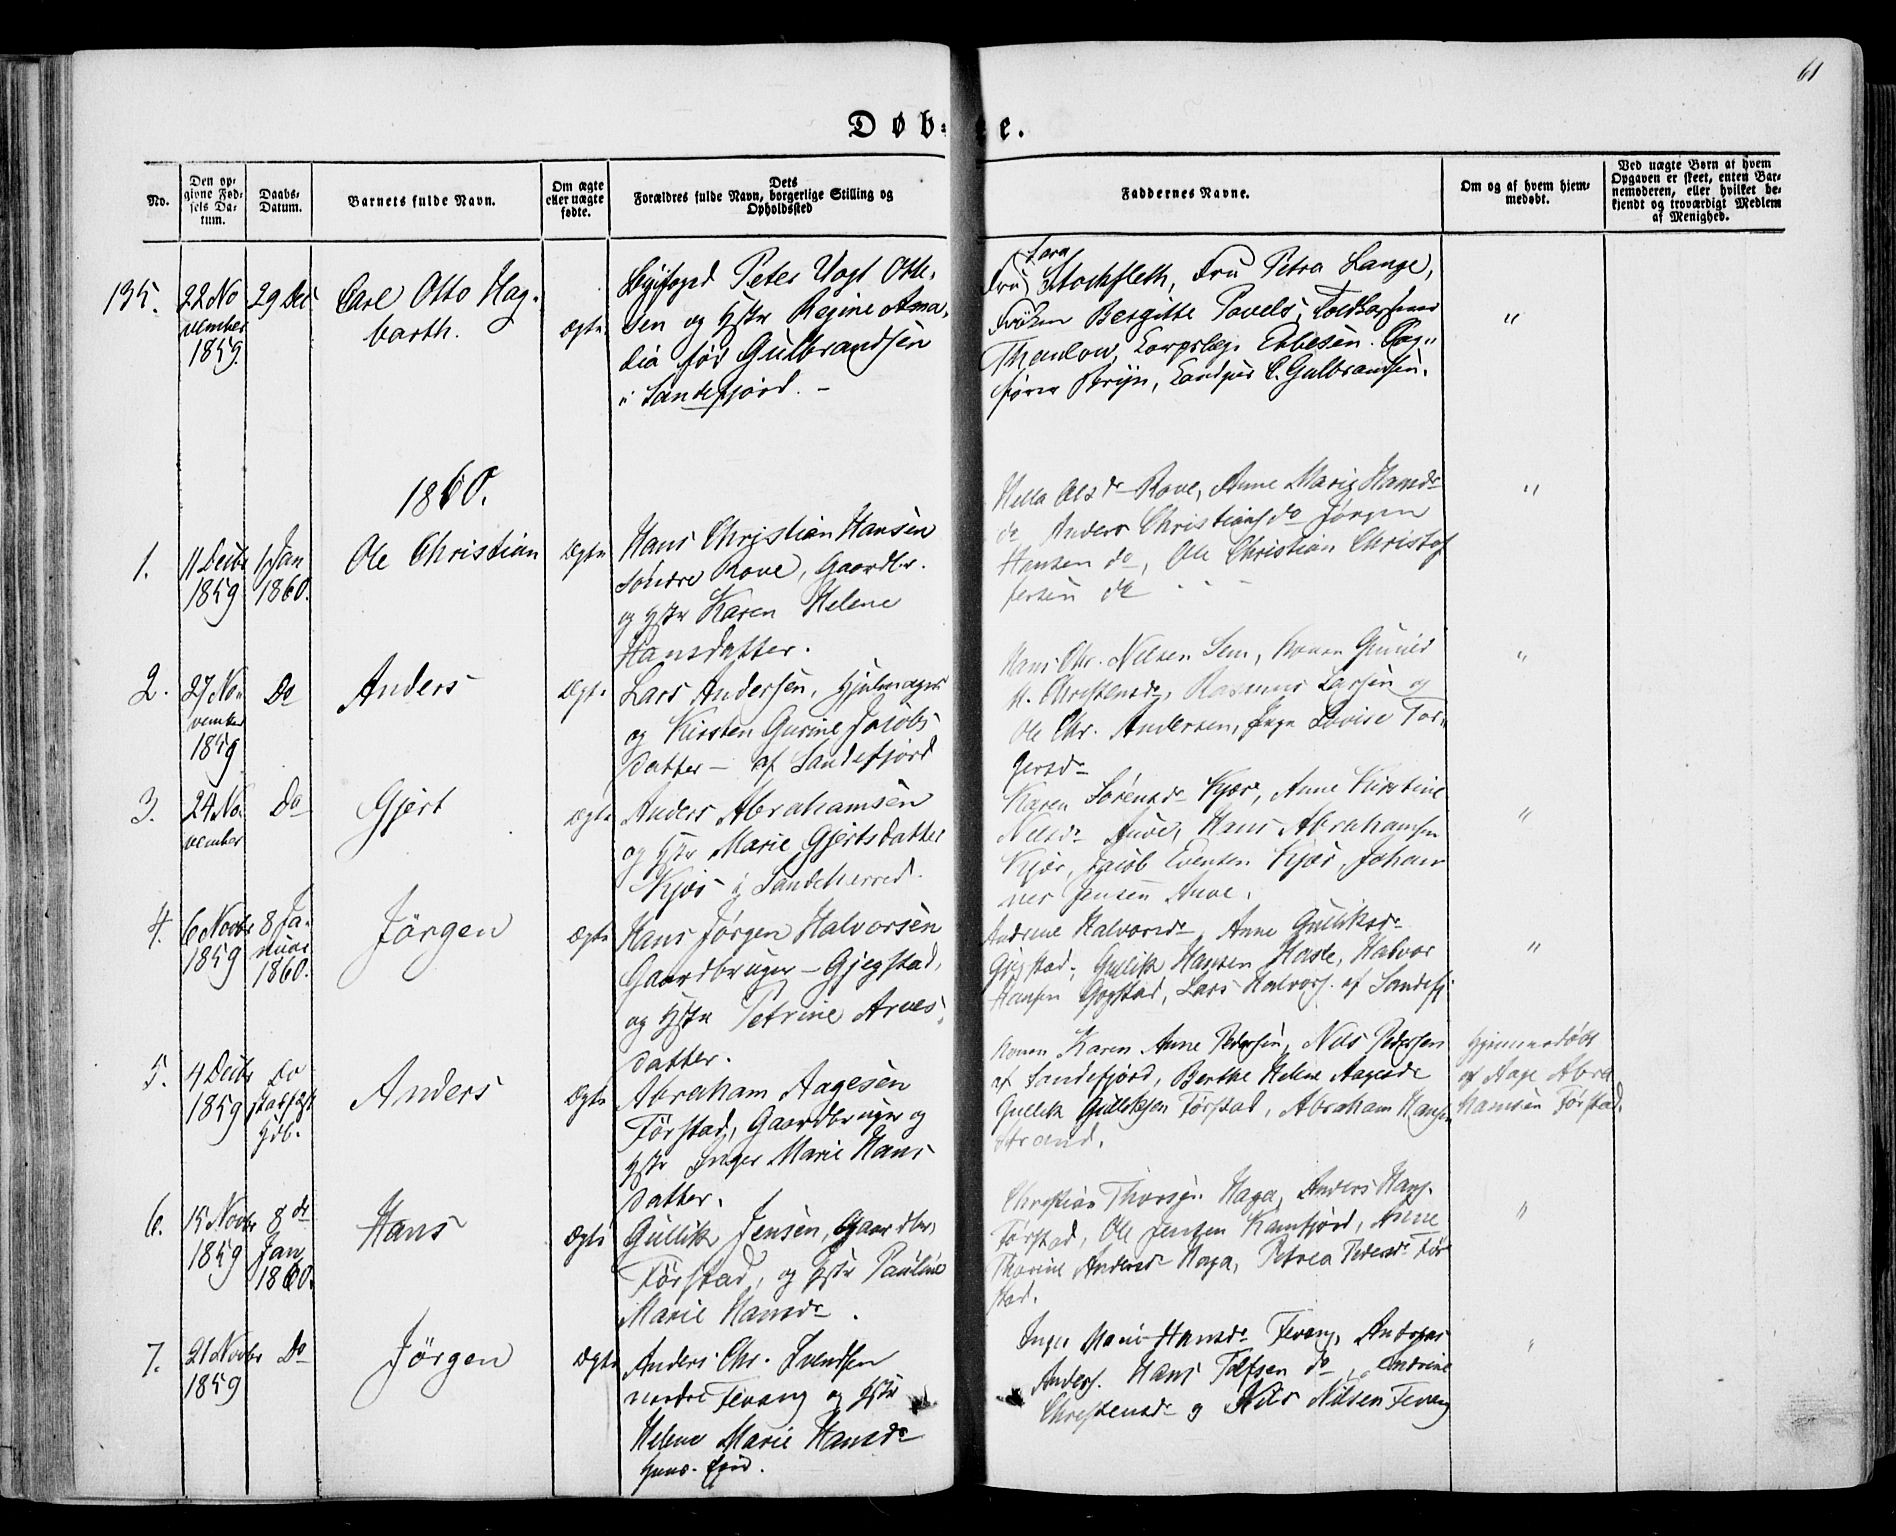 61
Døb- e.
No.
Den op-
givne Fød-
sels Da-
tum.
Daabs-
Datum.
Barnets fulde Navn.
Om ægte
eller uægte
fødte.
Dets
Forældres fulde Navn, borgerlige Stilling og
Opholdssted
Faddernes Navne.
Om og af hvem hjem-
medøbt.
Ved uægte Børn af hvem
Opgaven er skeet, enten Bar-
nemoderen, eller hvilket be-
kjendt og troværdigt Medlem
af Menighed.
135.
22 No
vember
1859.
29 Dec
Carl Otto Hag-
barth.
Ægte
Byfoged Peter Vogt Otte-
sen og Hstr Regine Ama-
lia fød Gulbrandsen
i Sandefjord. -
Sara
Fru Stockfleth, Fru Petra Lange,
Frøken Bergitte Pavels,
Thaulow, Corpslæge Ebbesen.
fører Bryn, C. Gulbrandsen.
"
1860.
1.
11 Decbr
1859
1 Jan
1860.
Ole Christian
Ægte
Hans Christian Hansen
Søndre Rove, Gaardbr.
og Hstr Karen Helene
Hansdatter.
Hella Olsdr Rove, Anne Marie Hansdr
do Anders Christians do Jørgen
Hansen do, Ole Christian Christof
fersen do
"
2.
27 No-
vember
1859
Do
Anders
Ægte
Lars Andersen, Hjulmager
og Kirsten Gurine Jacobs-
datter - af Sandefjord
Hans Chr. Nilsen Sem, Konen
Rasmus Larsen og
Ole Chr. Andersen, Inga Lovise Tor-
gersdr
"
3.
24 No-
vember
Do
Gjert
Ægte
Anders Abrahamsen
og Hstr Marie Gjertsdatter
Kjær i Sandeherred.
Karen Sørensdr Kjær, Anne Kirstine
Nilsdr Auve, Hans Abrahamsen
Kjær, Jacob Evensen Kjær, Johan
nes Jensen Auve.
"
4.
6 Novbr
1859
8 Ja-
nuar
1860.
Jørgen
Ægte
Hans Jørgen Halvorsen
Gaardbruger - Gjegstad,
og Hstr Petrine Arves-
datter.
Andrine Halvorsdr, Anne Gulliksdr
Gjegstad, Gullik Hansen Hasle, Halvor
Hansen Gogstad, Lars Halvors. af Sandefj
"
5.
4 Decbr
1859
Do
stadfæst
Hjdb.
Anders
Ægte
Abraham Aagesen
Førstad, Gaardbruger og
Hstr Inger Marie Hans
datter.
Konen Karen Anne Pedersen, Nils Pedersen
af Sandefjord, Berthe Helene Aagesdr
Gullik Gulliksen Førstad, Abraham Hansen
Strand.
Hjemmedøbt
af Aage Abra
hamsen Førstad.
6.
15 Novbr
1859
8 de
Jan
1860.
Hans
Ægte
Gullik Jensen, Gaardbr,
Førstad, og Hstr Pauline
Marie Hansdr.
Christian Thorsen Haga, Anders Hans.
Førstad, Ole Jensen Kamfjord, Anne
Thorine Andersdr Haga, Petrea Pedersdr Før
stad.
"
7.
21 Novbr
1859
Do
Jørgen
Ægte
Anders Chr. Svendsen
nordre Fevang og Hstr
Helene Marie Hansdr
Inger Marie Hansdr Fevang, Andreas
Anders. Hans Tolfsen do, Andrine
Christensdr og Nils Nilsen Fevang
"